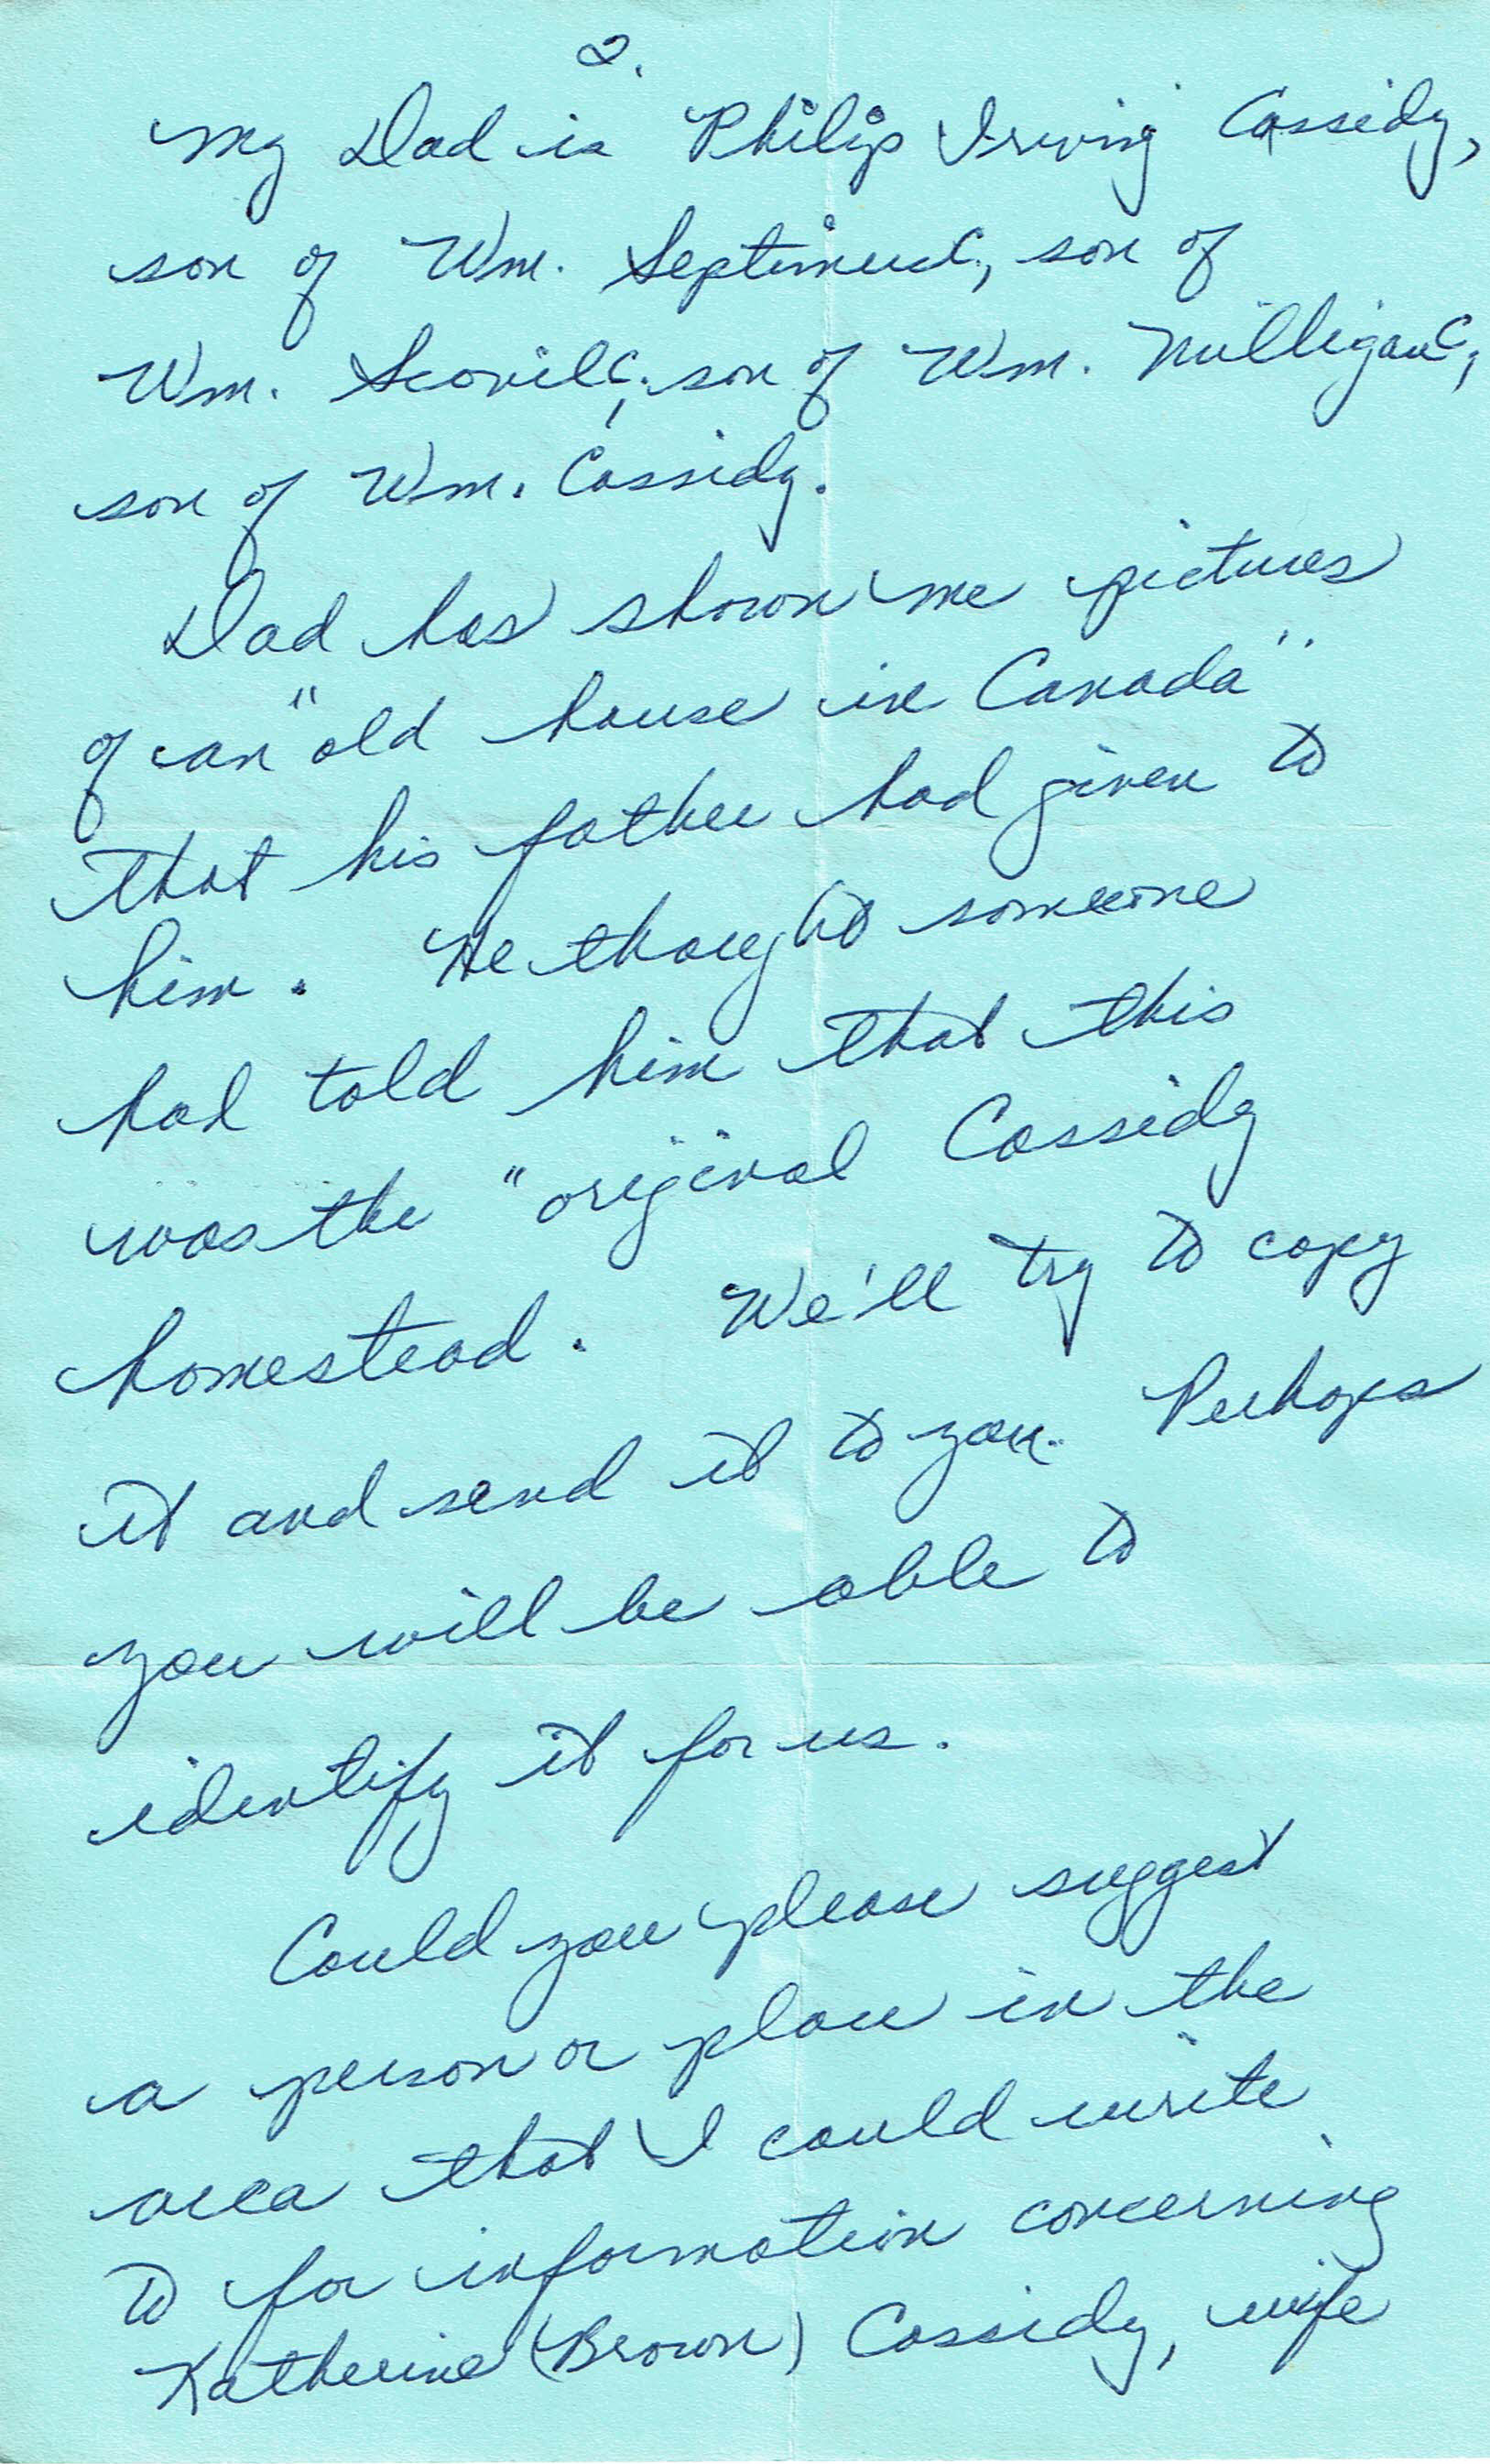 2.
My Dad is Philip Irving Cassidy,
son of Wm. Septimus C., son of
Wm. Scovil C., son of Wm. Milligan C.,
son of Wm. Cassidy.
Dad has shown me pictures
of an "old house in Canada"
that his father had given to
him. He thought someone
had told him that this
was the "original Cassidy
homestead. We'll try to copy
it and send it to you. Perhaps
you will be able to
identify it for us.
Could you please suggest
a person or place in the
area that I could write
to for information concerning
Katherine (Brown) Cassidy, wife